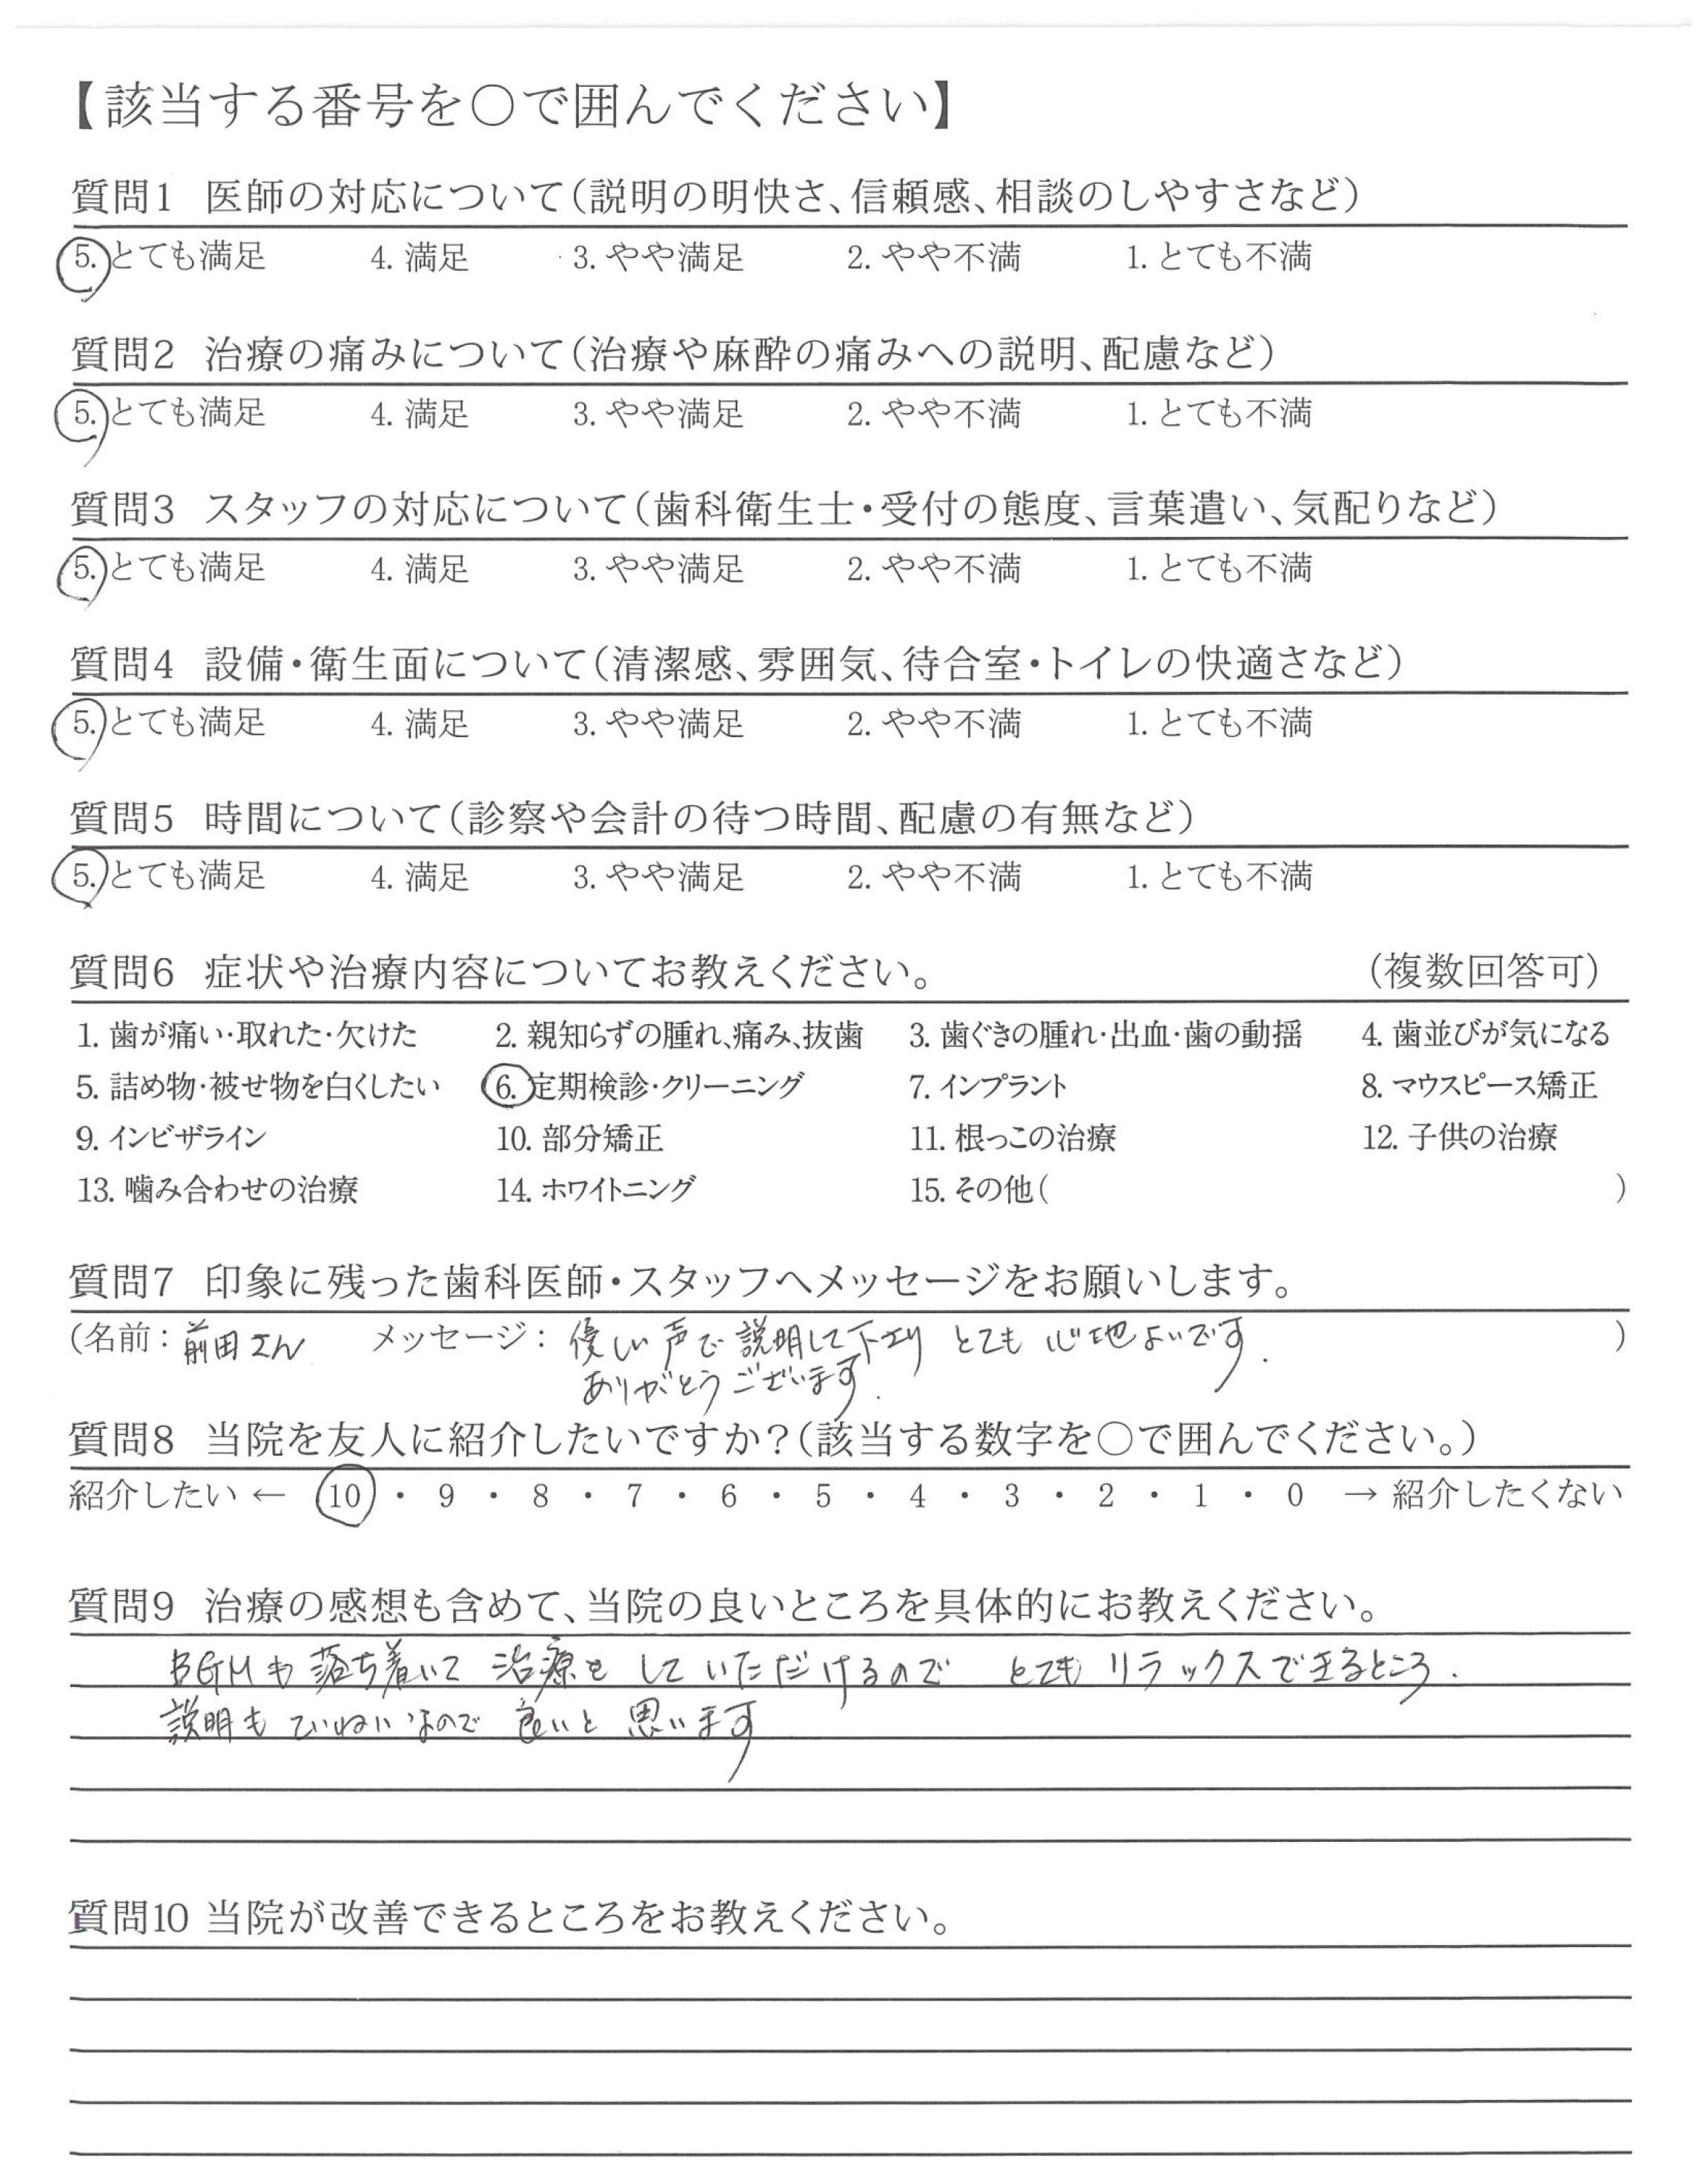 【該当する番号を○で囲んでください】
質問1 医師の対応について(説明の明快さ、信頼感、相談のしやすさなど)
5. とても満足 4. 満足 3. やや満足 2. やや不満 1. とても不満
質問2 治療の痛みについて(治療や麻酔の痛みへの説明、配慮など)
5. とても満足 4. 満足 3. やや満足 2. やや不満 1. とても不満
質問3 スタッフの対応について(歯科衛生士・受付の態度、言葉遣い、気配りなど)
5. とても満足 4. 満足 3. やや満足 2. やや不満 1. とても不満
質問4 設備・衛生面について(清潔感、雰囲気、待合室・トイレの快適さなど)
5. とても満足 4. 満足 3. やや満足 2. やや不満 1. とても不満
質問5 時間について(診察や会計の待つ時間、配慮の有無など)
5. とても満足 4. 満足 3. やや満足 2. やや不満 1. とても不満
質問6 症状や治療内容についてお教えください。 (複数回答可)
1. 歯が痛い・取れた・欠けた 2. 親知らずの腫れ、痛み、抜歯 3. 歯ぐきの腫れ・出血・歯の動揺 4. 歯並びが気になる
5. 詰め物・被せ物を白くしたい 6. 定期検診・クリーニング 7. インプラント 8. マウスピース矯正
9. インビザライン 10. 部分矯正 11. 根っこの治療 12. 子供の治療
13. 噛み合わせの治療 14. ホワイトニング 15. その他( )
質問7 印象に残った歯科医師・スタッフへメッセージをお願いします。
(名前: 前田さん メッセージ: 優しい声で説明して下さり とても心地よいです. )
ありがとうございます.
質問8 当院を友人に紹介したいですか?(該当する数字を○で囲んでください。)
紹介したい ← 10 ・ 9 ・ 8 ・ 7 ・ 6 ・ 5 ・ 4 ・ 3 ・ 2 ・ 1 ・ 0 → 紹介したくない
質問9 治療の感想も含めて、当院の良いところを具体的にお教えください。
BGMも落ち着いて 治療をしていただけるので とてもリラックスできるところ.
説明もていねいなので 良いと思います
質問10 当院が改善できるところをお教えください。